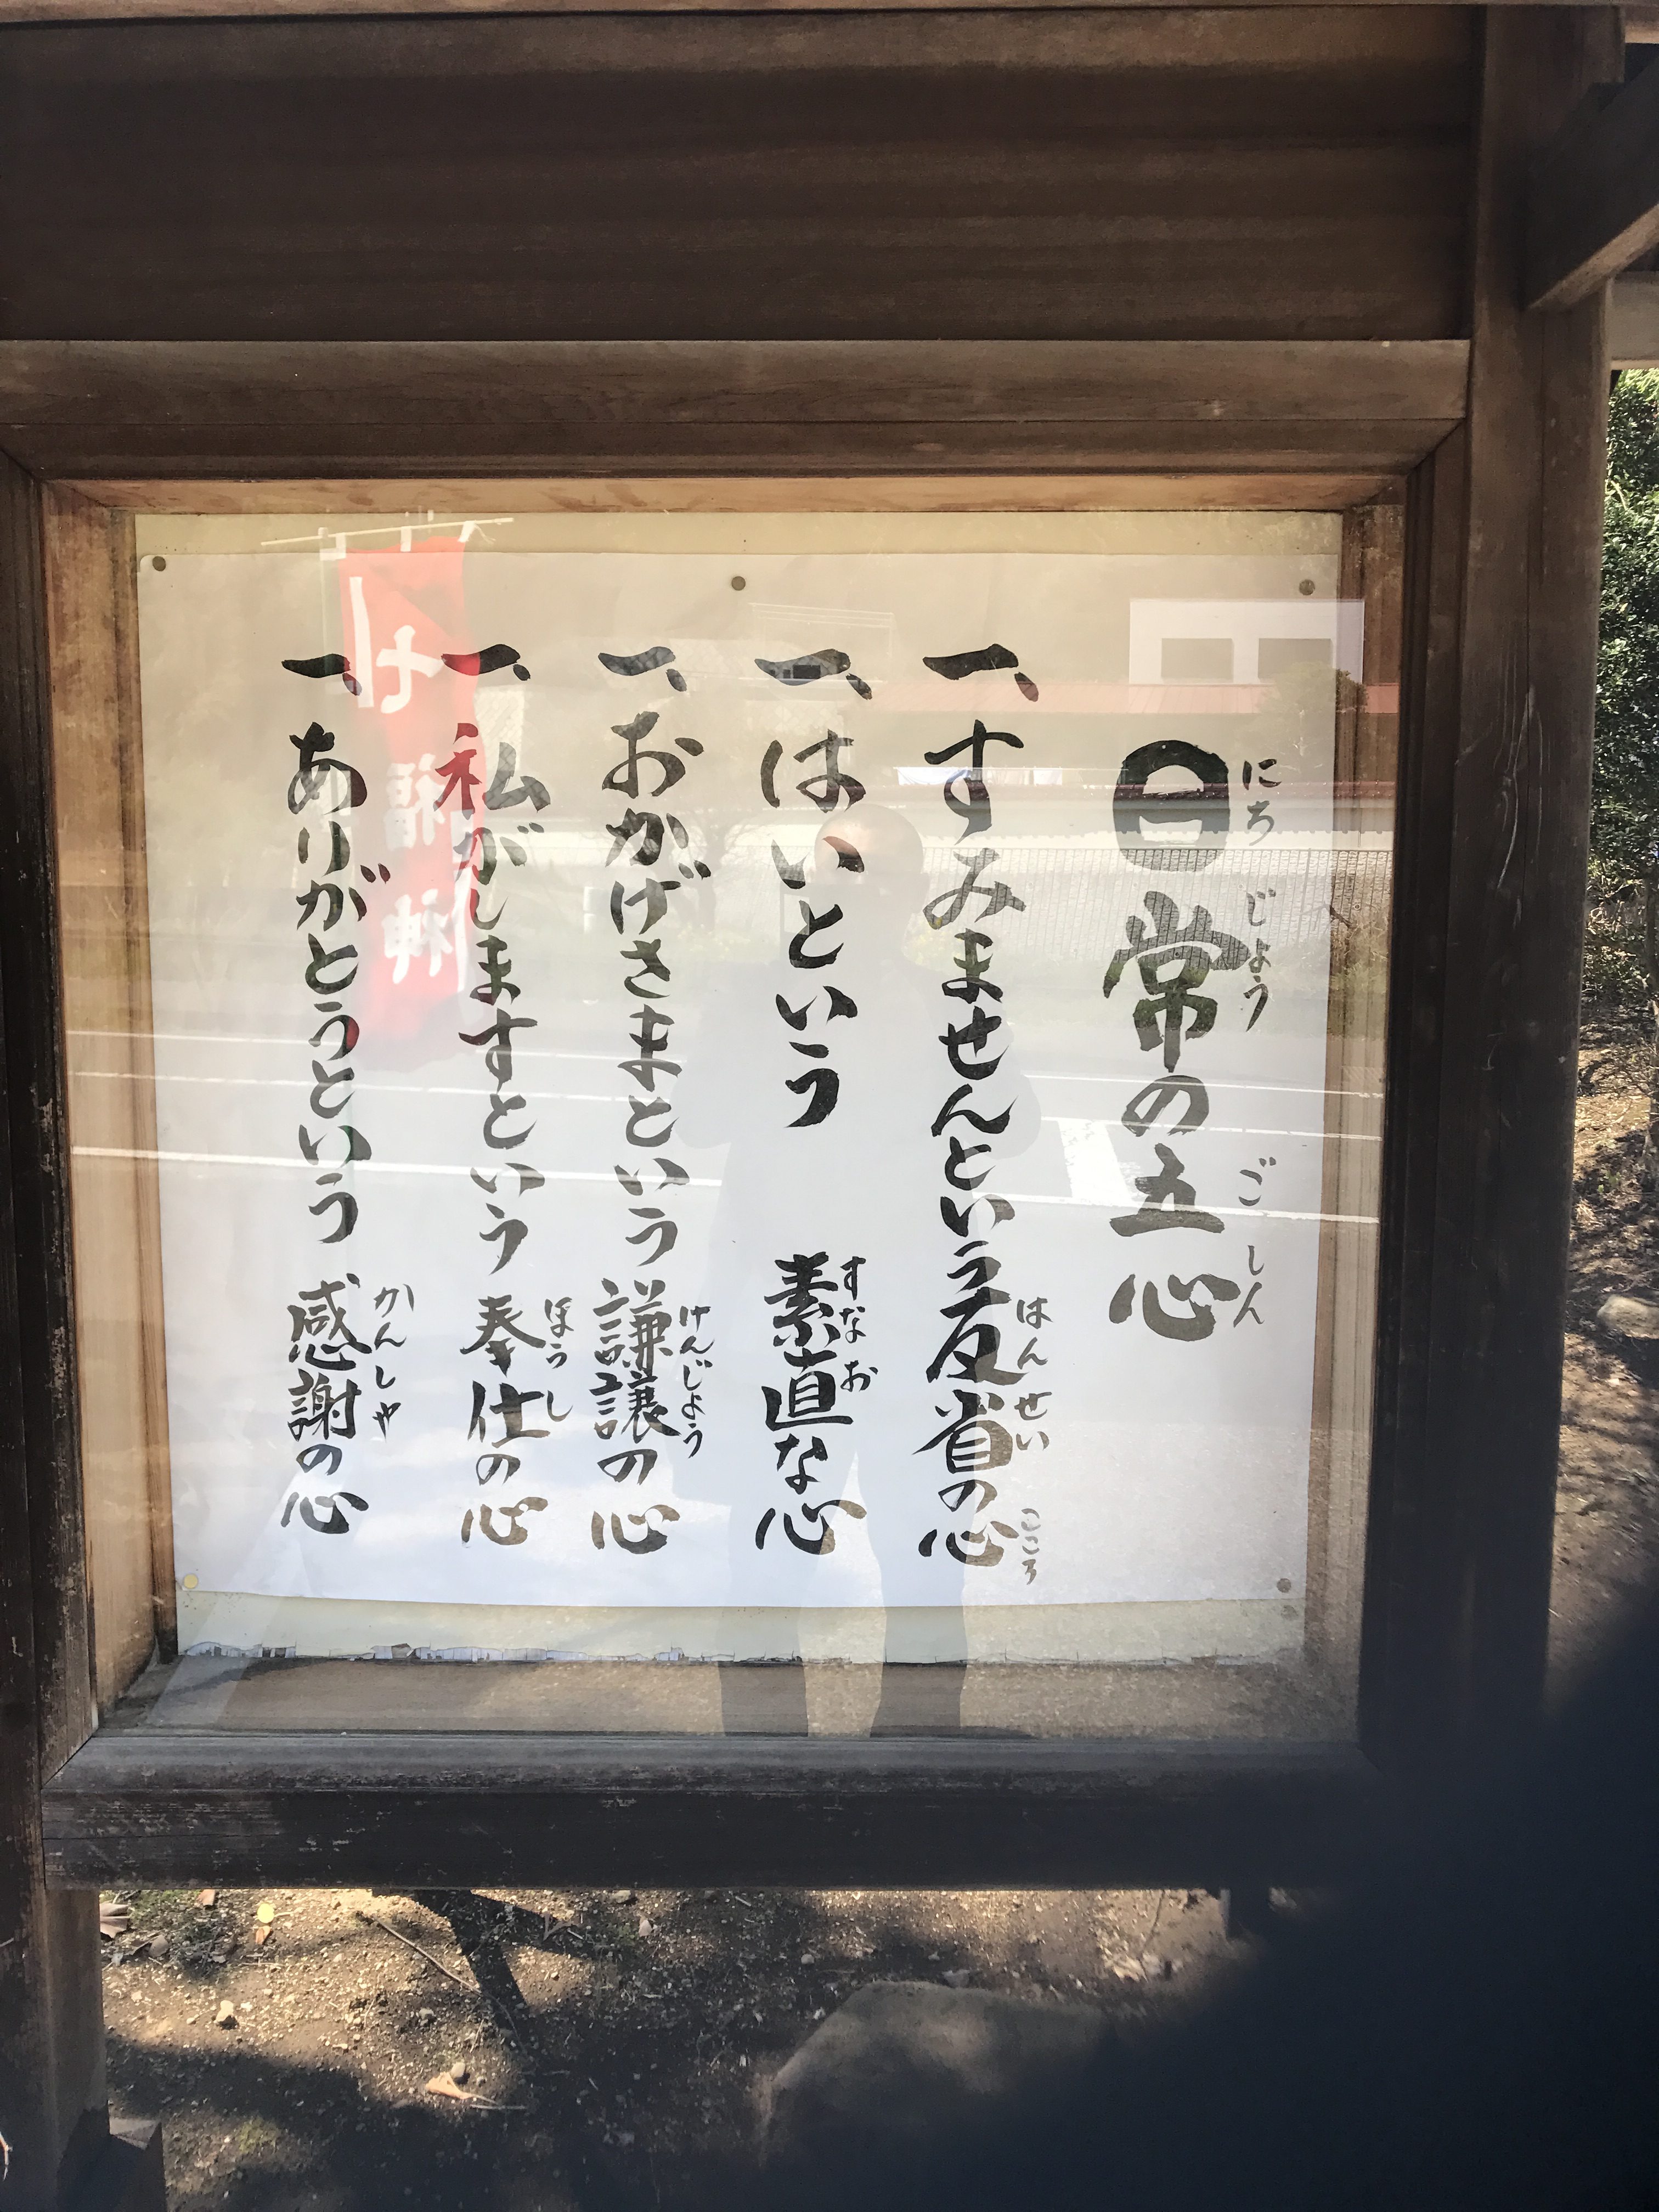 日常の五心
にちじょう ごしん
一、すみませんという反省の心
はんせい こころ
一、はいという 素直な心
すなお
一、おかげさまという謙譲の心
けんじょう
一、私がしますという 奉仕の心
ほうし
一、ありがとうという 感謝の心
かんしゃ
七福神